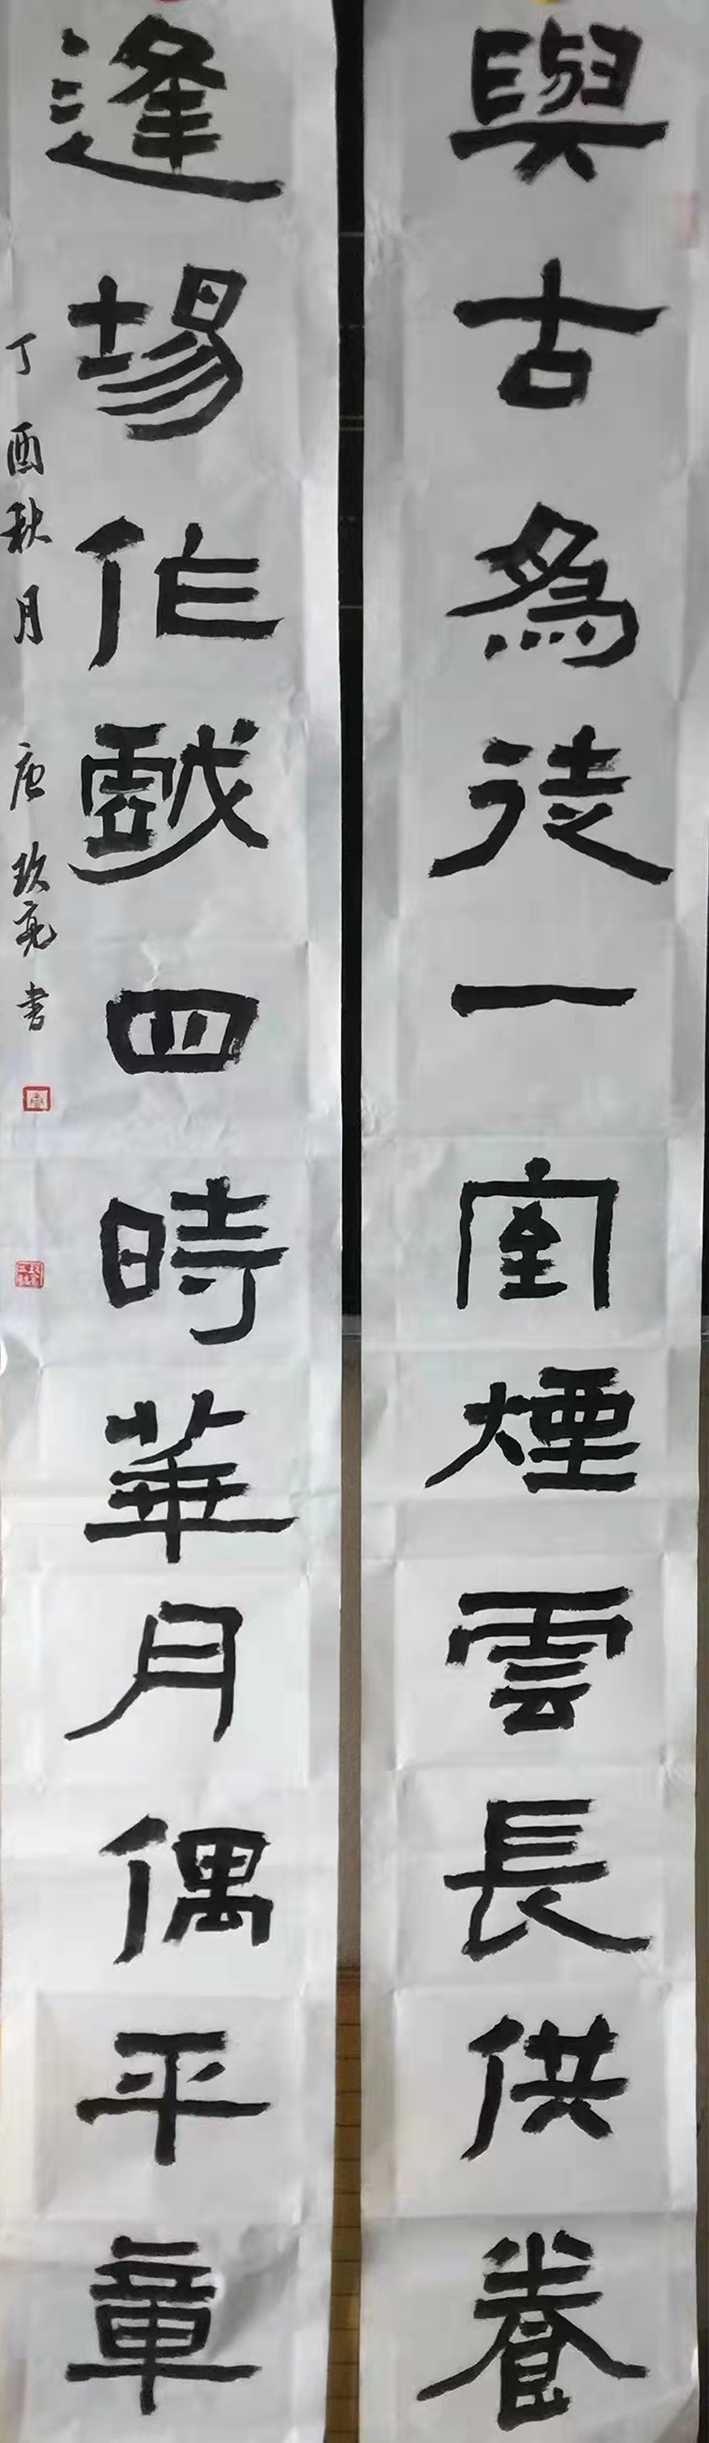 與古為徒一室煙雲長供養
逢場作戲四時華月偶平章
丁酉秋月 唐玖亮書